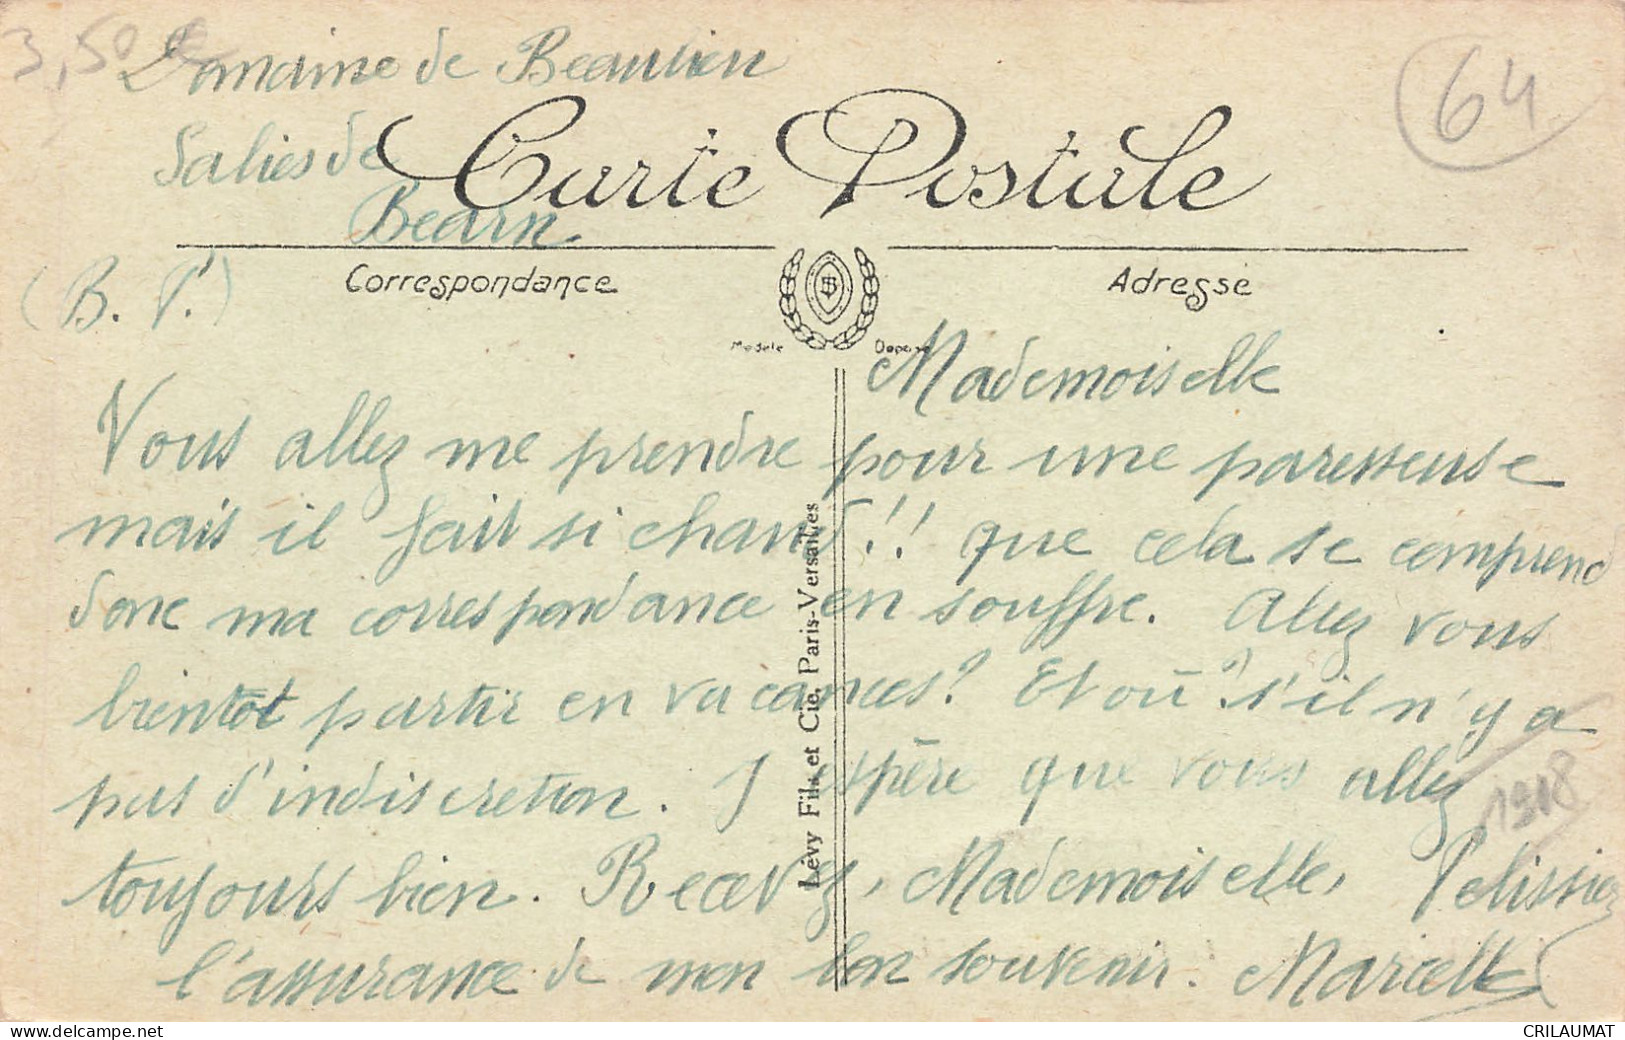 3,50
64
Domaine de Beaulieu
Salies de
Bearn
(B. P.)
Carte Postale
Correspondance
Adresse
Modèle
Déposé
Mademoiselle
Vous allez me prendre pour une paresseuse
mais il fait si chaud!! que cela se comprend
donc ma correspondance en souffre. Allez vous
bientôt partir en vacances? Et où? s'il n'y a
pas d'indiscretion. J'espère que vous allez
toujours bien. Recevez, Mademoiselle,
l'assurance de mon bon souvenir.
Pelissier
Marcelle
1918
Lévy Fils et Cie, Paris-Versailles
www.delcampe.net
CRILAUMAT